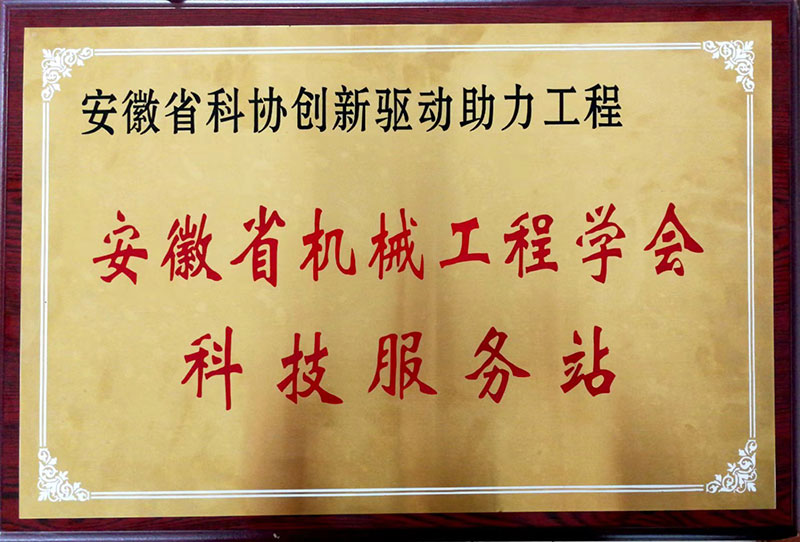 安徽省科协创新驱动助力工程
安徽省机械工程学会
科技服务站